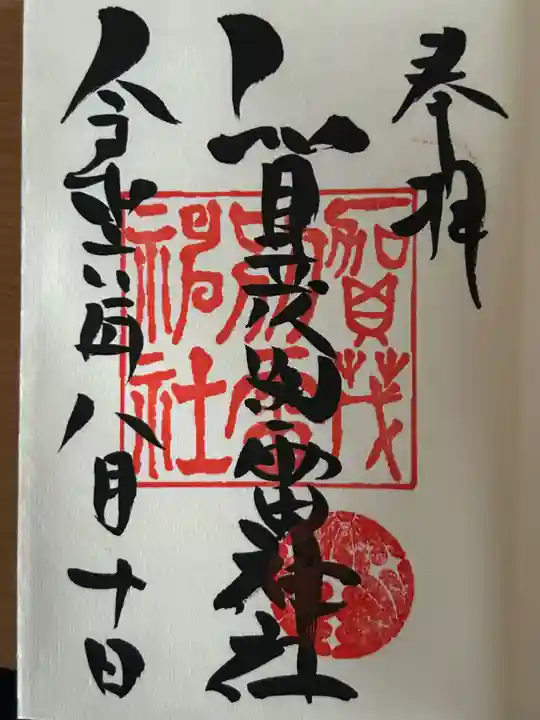 奉拝
賀茂別雷神社
令 年八月十日
賀茂
別雷
神社